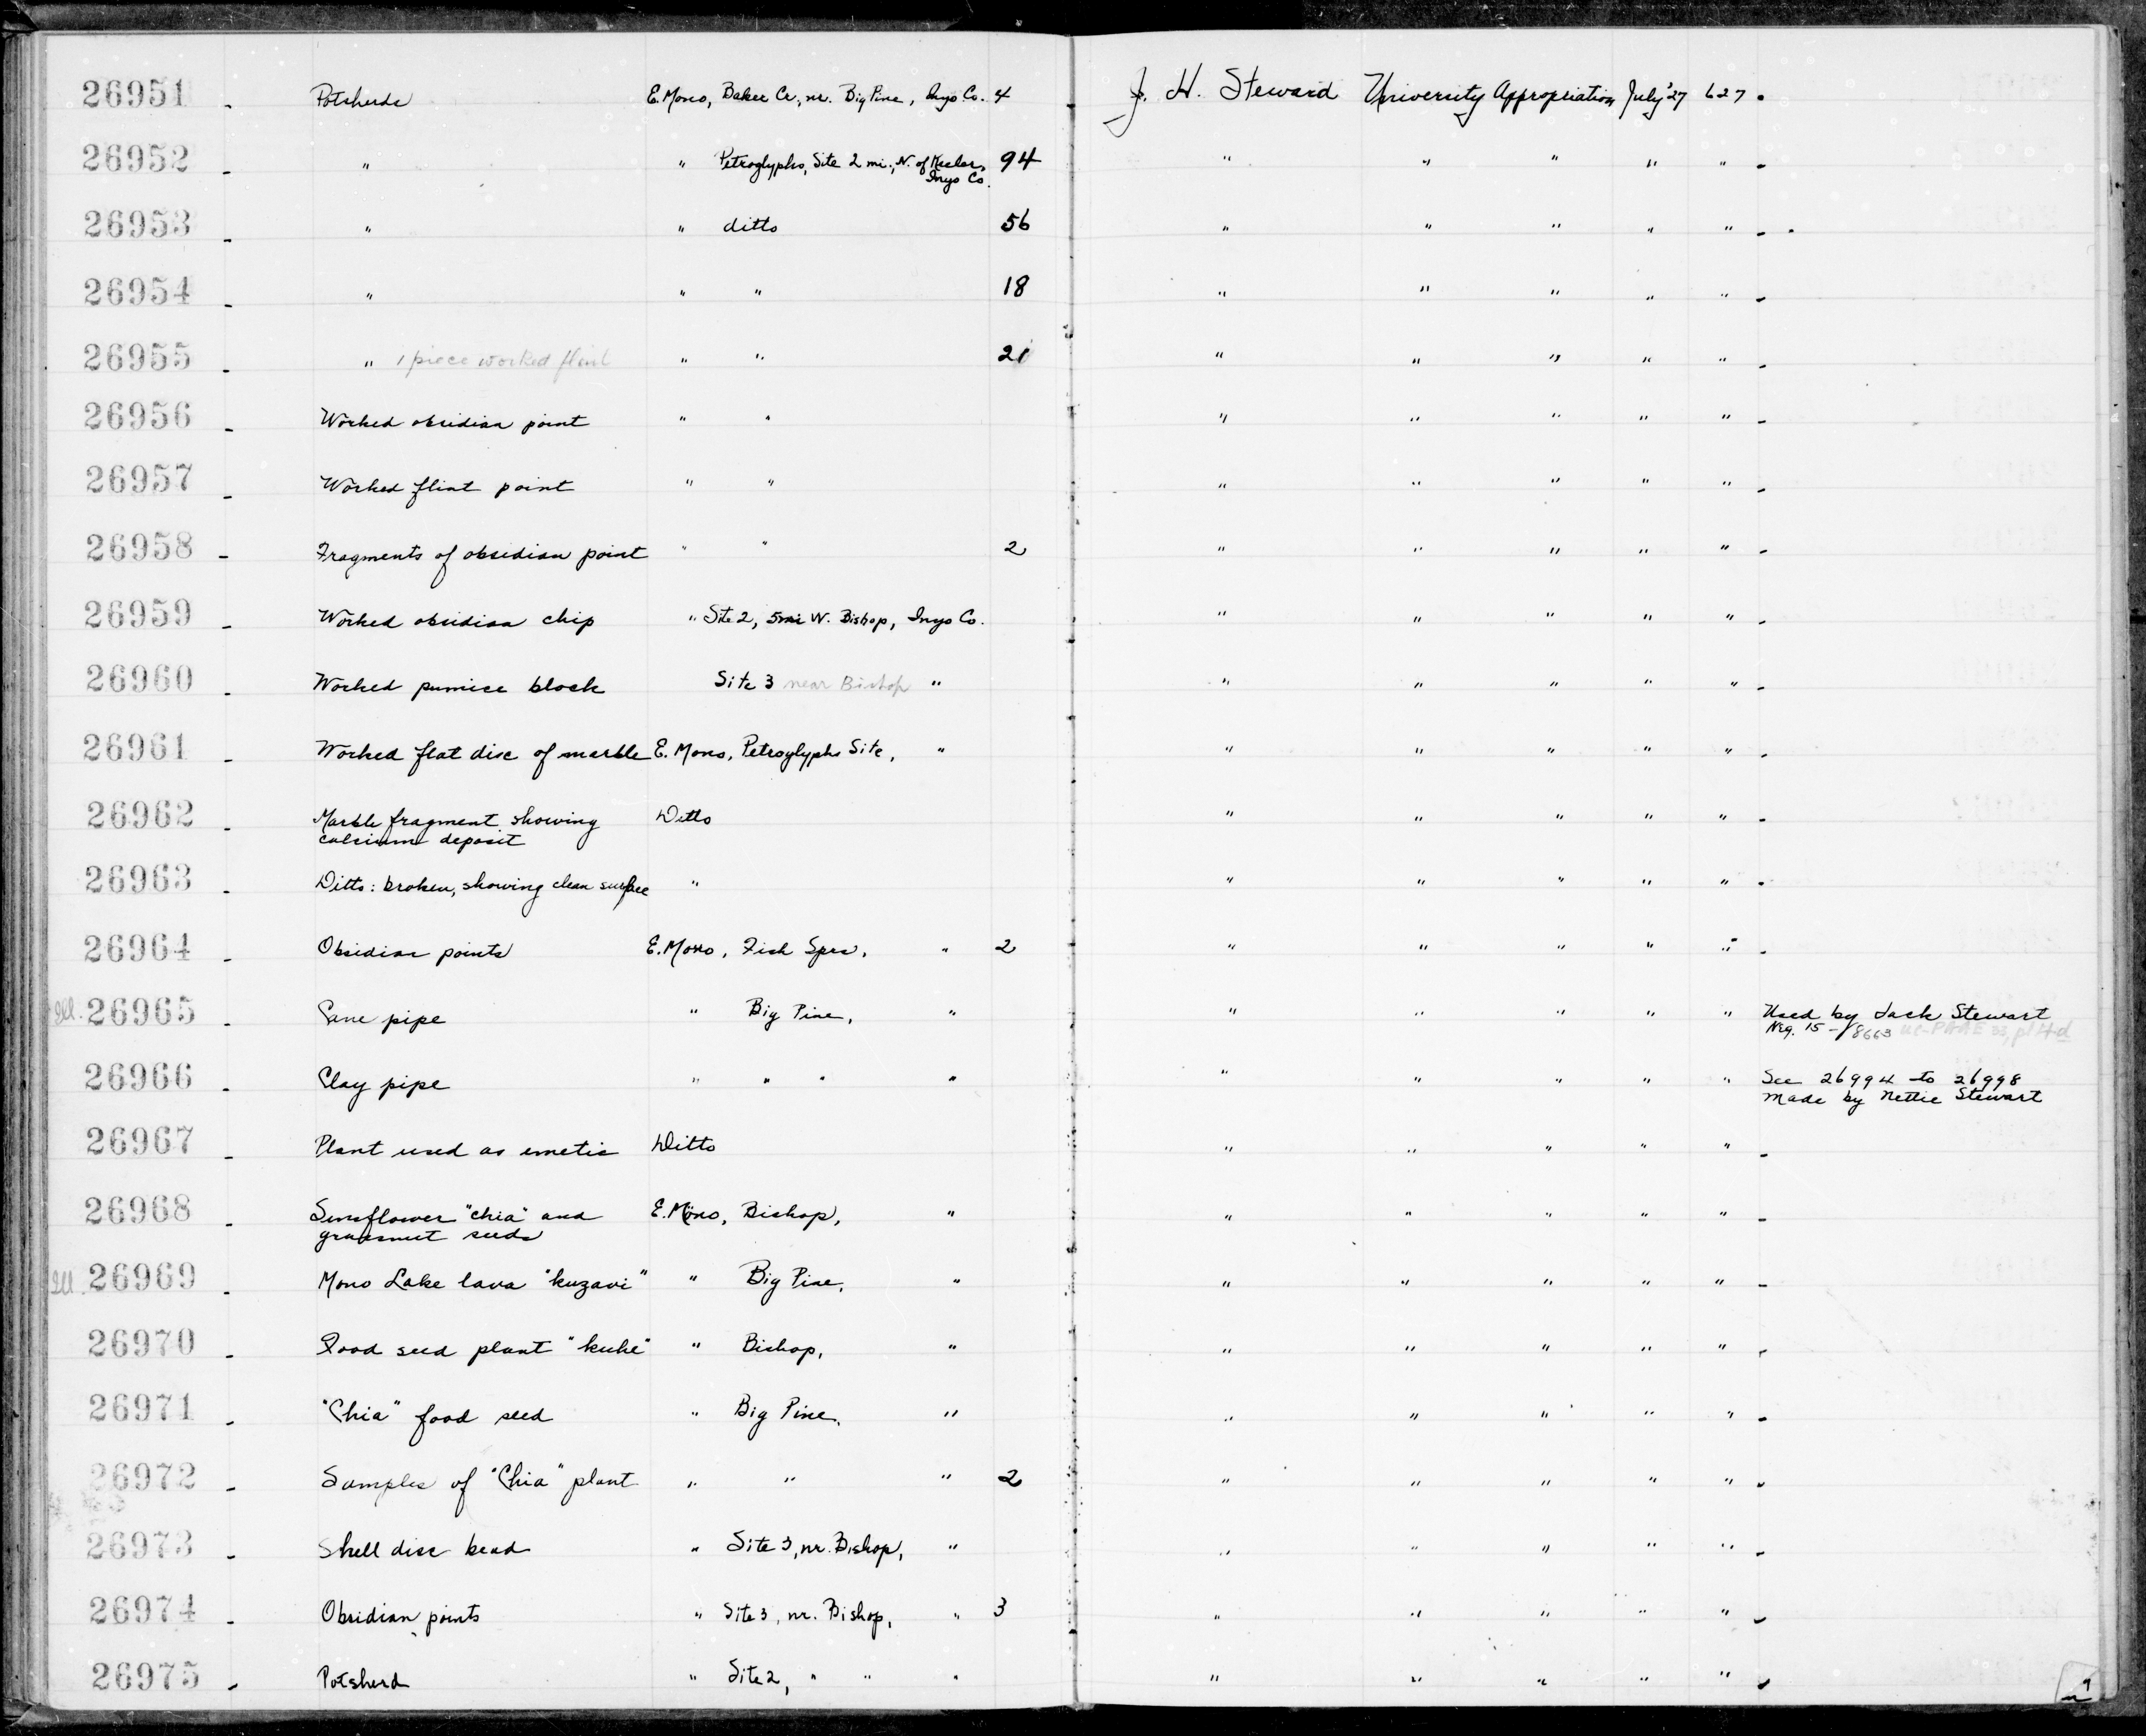 26951 - Potsherds E. Mono, Baker Cr., nr. Big Pine, Inyo Co. 4 J. H. Steward University Appropriation July '27 627 -
26952 - " " Petroglyphs, Site 2 mi., N. of Keeler, 94 " " " " " -
Inyo Co.
26953 - " " ditto 56 " " " " " -
26954 - " " " 18 " " " " " -
26955 - " 1 piece worked flint " " 21 " " " " " -
26956 - Worked obsidian point " " " " " " " -
26957 - Worked flint point " " " " " " " -
26958 - Fragments of obsidian point " " 2 " " " " " -
26959 - Worked obsidian chip " Site 2, 5 mi W. Bishop, Inyo Co. " " " " " -
26960 - Worked pumice block Site 3 near Bishop " " " " " " -
26961 - Worked flat disc of marble E. Mono, Petroglyphs Site, " " " " " " -
26962 - Marble fragment showing Ditto " " " " " -
calcium deposit
26963 - Ditto: broken, showing clean surface " " " " " " -
26964 - Obsidian points E. Mono, Fish Sprs, " 2 " " " " " -
Ill. 26965 - Cane pipe " Big Pine, " " " " " " Used by Jack Stewart
Neg. 15-18663 UC-PAAE 33, pl 4d
26966 - Clay pipe " " " " " " " " " See 26994 to 26998
made by Nettie Stewart
26967 - Plant used as emetic Ditto " " " " " -
26968 - Sunflower "chia" and E. Mono, Bishop, " " " " " " -
grassnut seeds
Ill. 26969 - Mono Lake lava "kuzavi" " Big Pine, " " " " " " -
26970 - Food seed plant "kuhe" " Bishop, " " " " " " -
26971 - "Chia" food seed " Big Pine, " " " " " " -
26972 - Samples of "Chia" plant " " " 2 " " " " " -
26973 - Shell disc bead " Site 3, nr. Bishop, " " " " " " -
26974 - Obsidian points " Site 3, nr. Bishop, " 3 " " " " " -
26975 - Potsherd " Site 2, " " " " " " " " -